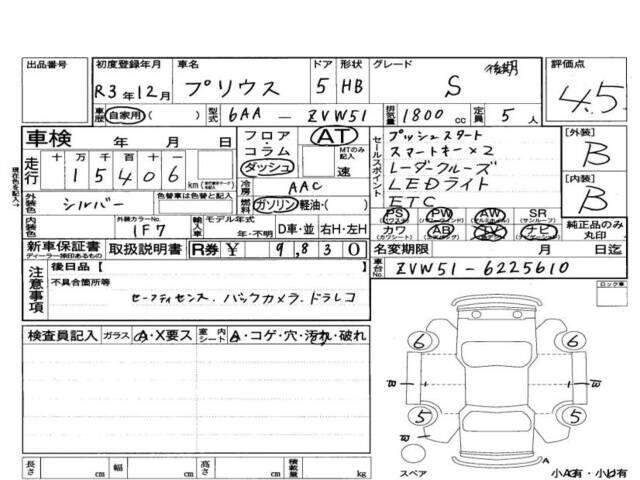 出品番号
初度登録年月
R3年12月
車名
プリウス
ドア 形状
5 HB
グレード
S 後期
評価点
4.5
車歴 自家用・( )
型式 6AA - ZVW51
排気量 1800 cc
定員 5 人
車検 年 月 日
フロア・コラム ダッシュ
AT
MTのみ記入
速
走行
十万 万 千 百 十 一
1 5 4 0 6
km
冷房 AAC
燃料 ガソリン・軽油・( )
セールスポイント
プッシュスタート
スマートキー×2
レーダークルーズ
LEDライト
ETC
[外装]
B
[内装]
B
現在色を記入
外装色 シルバー
色替車は色替と記入
PS PW AW SR
(パワステ) (パワーウィンドウ) (サンルーフ)
カワ AB TV ナビ
(カワシート) (エアバッグ)
純正品のみ丸印
内装色
外装カラーNo.
1F7
輸入車
モデル年式
年・不明
D車・並 右H・左H
新車保証書
ディーラー捺印あるもの
取扱説明書
R券 ¥ 9,830
名変期限 月 日迄
車台No. ZVW51-6225610
注意事項
後日品【 】
不具合箇所等
セーフティセンス.バックカメラ.ドラレコ
ロック車
検査員記入 ガラス A・X要ス 室内シート A・コゲ・穴・汚れ・破れ
6 6
W 1 1 W
5 5
A
スペア
小A有・小U有
長さ cm 幅 cm 高さ cm 積載量 kg